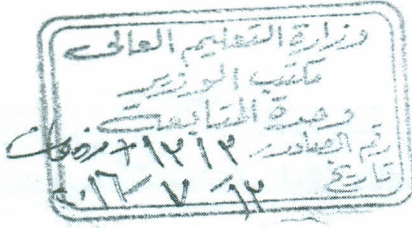 وزارة التعليم العالى
مكتب الوزير
وحدة المتابعة
رقم الصادر ١٣١٣ + مرفقات
تاريخ ١٢ / ٧ / ٢٠١٦